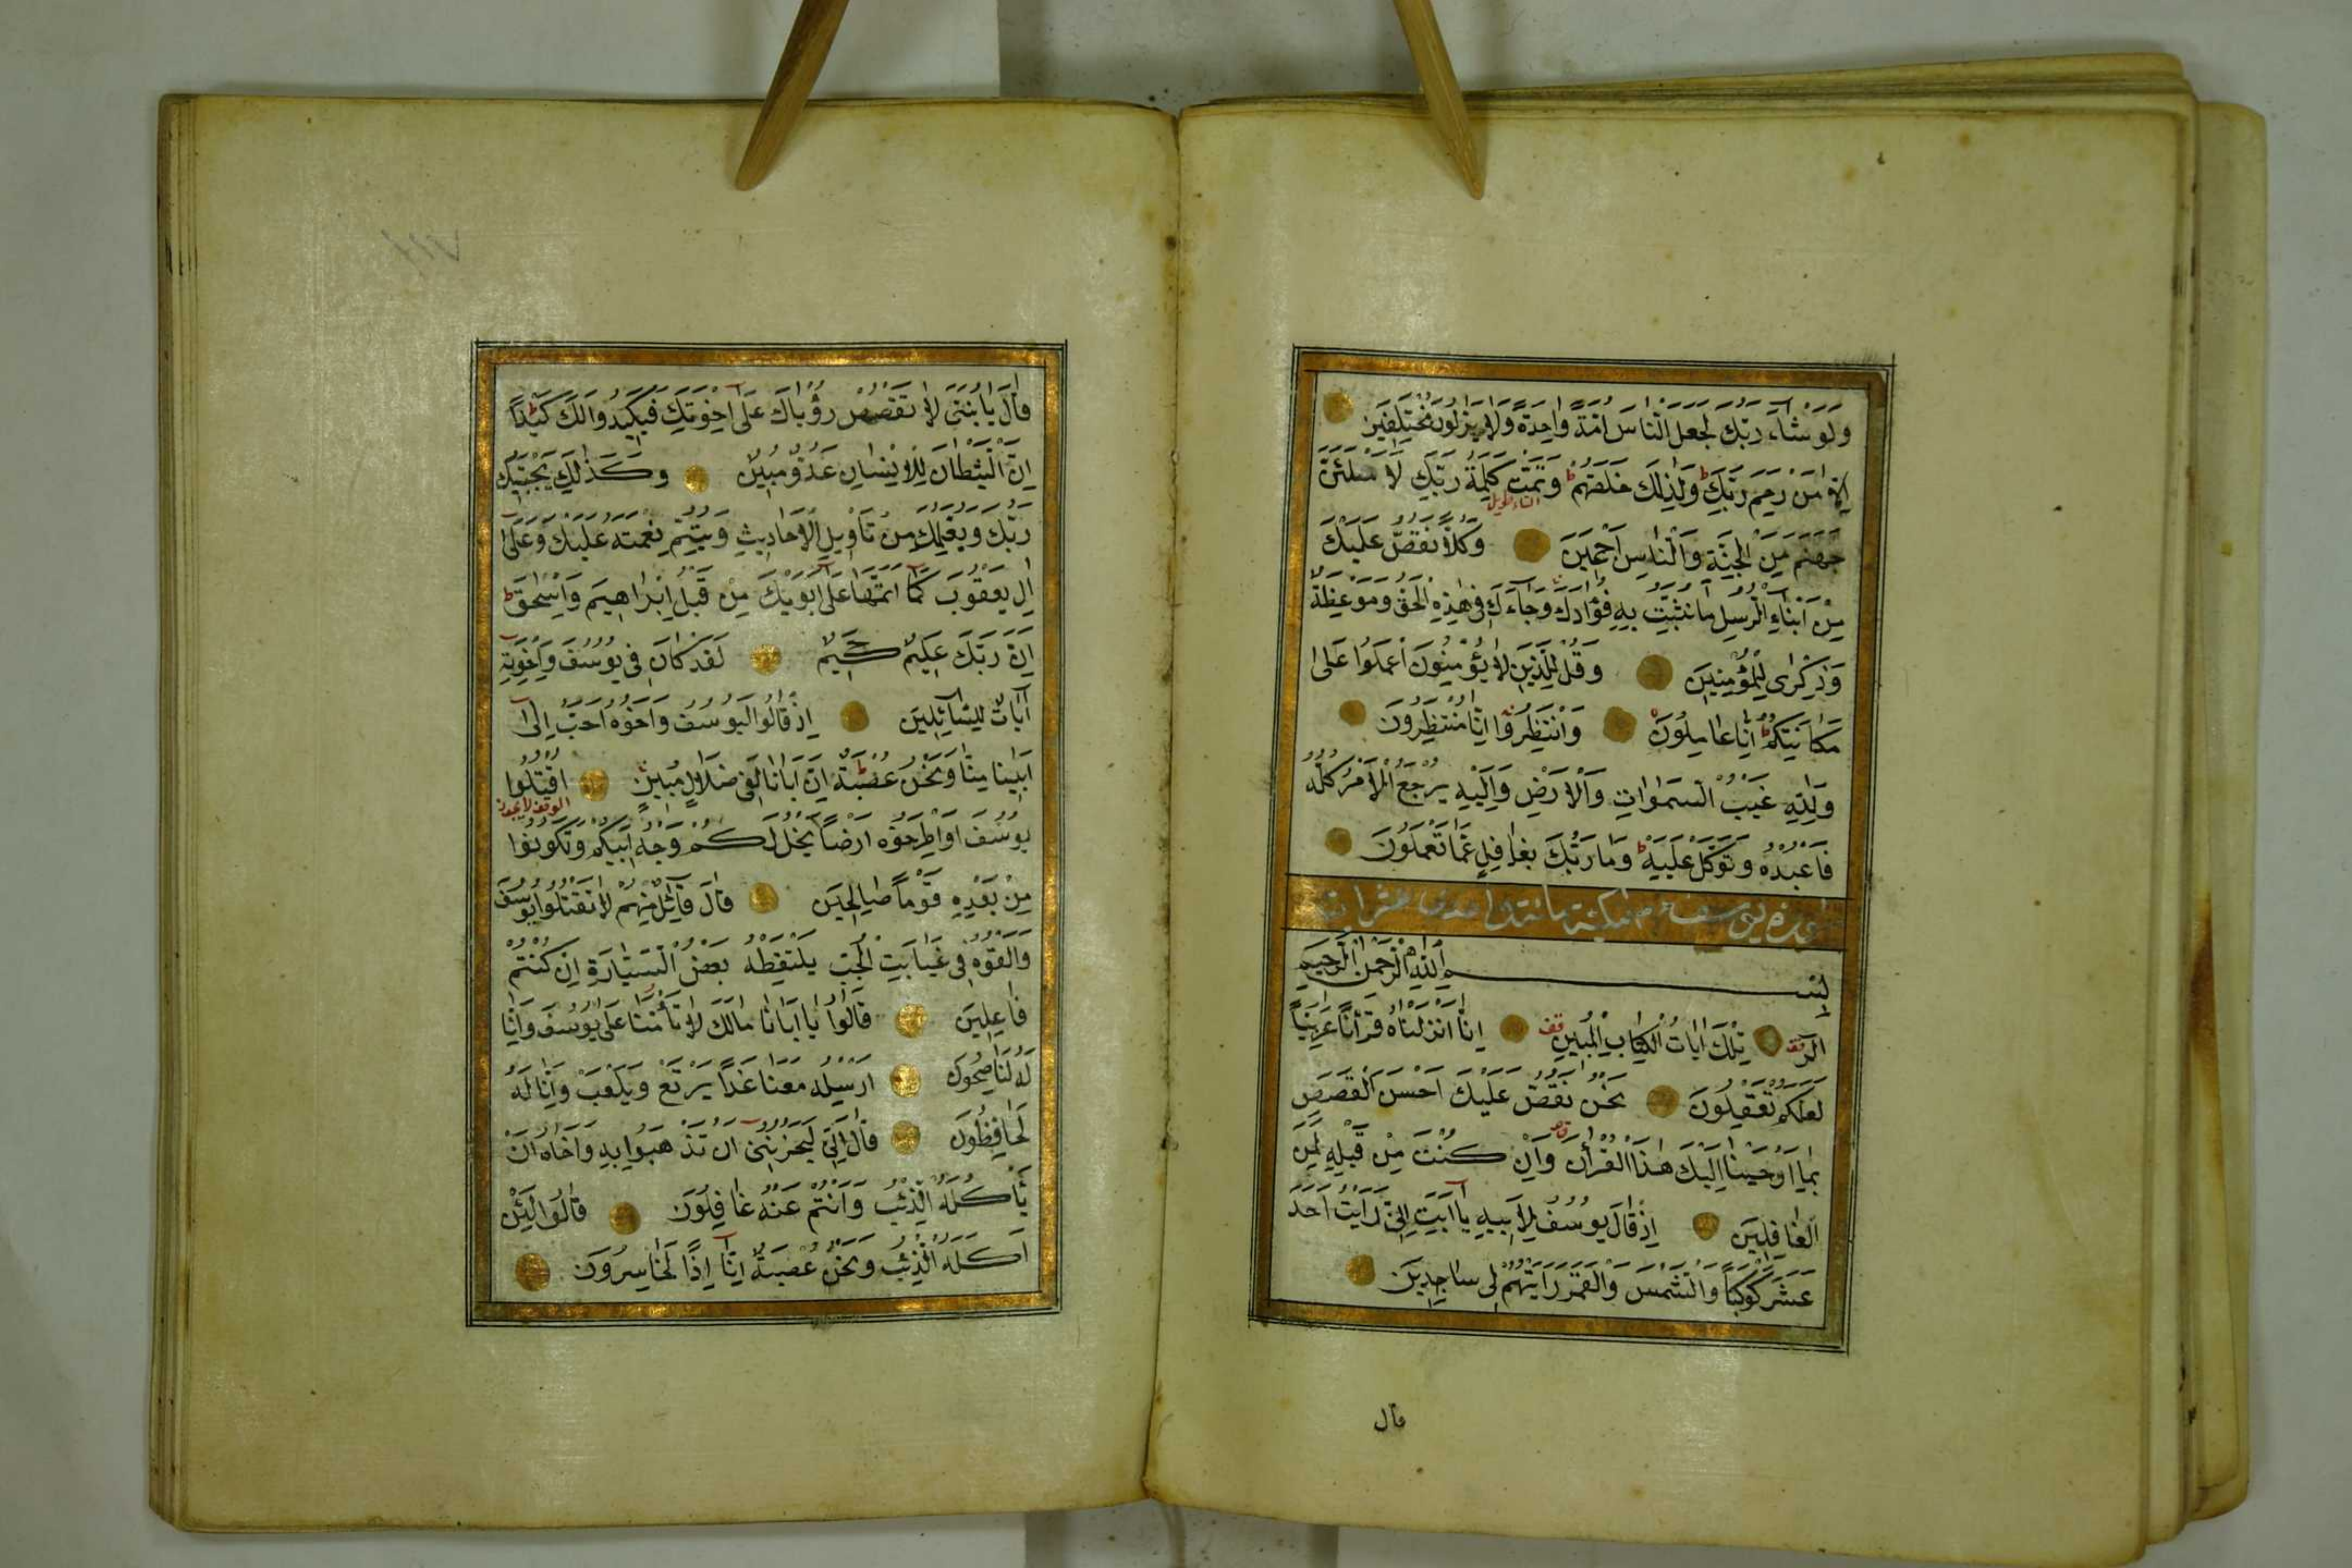 وَلَوْ شَاءَ رَبُّكَ لَجَعَلَ النَّاسَ اُمَّةً وَاحِدَةً وَلَا يَزَالُونَ مُخْتَلِفِينَ
اِلَّا مَنْ رَحِمَ رَبُّكَ ط وَلِذٰلِكَ خَلَقَهُمْ ط وَتَمَّتْ كَلِمَةُ رَبِّكَ لَاَمْلَئَنَّ
التاء طويل
جَهَنَّمَ مِنَ الْجِنَّةِ وَالنَّاسِ اَجْمَعِينَ وَكُلًّا نَقُصُّ عَلَيْكَ
مِنْ اَنْبَاءِ الرُّسُلِ مَا نُثَبِّتُ بِهِ فُؤَادَكَ وَجَاءَكَ فِى هٰذِهِ الْحَقُّ وَمَوْعِظَةٌ
وَذِكْرٰى لِلْمُؤْمِنِينَ وَقُلْ لِلَّذِينَ لَا يُؤْمِنُونَ اعْمَلُوا عَلٰى
مَكَانَتِكُمْ ط اِنَّا عَامِلُونَ وَانْتَظِرُوا اِنَّا مُنْتَظِرُونَ
وَلِلّٰهِ غَيْبُ السَّمٰوَاتِ وَالْاَرْضِ وَاِلَيْهِ يُرْجَعُ الْاَمْرُ كُلُّهُ
فَاعْبُدْهُ وَتَوَكَّلْ عَلَيْهِ ط وَمَا رَبُّكَ بِغَافِلٍ عَمَّا تَعْمَلُونَ
سورة يوسف مكية مائة واحدى عشر ايات
بِسْمِ اللّٰهِ الرَّحْمٰنِ الرَّحِيمِ
الٓرٰ قف تِلْكَ اٰيَاتُ الْكِتَابِ الْمُبِينِ قف اِنَّا اَنْزَلْنَاهُ قُرْاٰنًا عَرَبِيًّا
لَعَلَّكُمْ تَعْقِلُونَ نَحْنُ نَقُصُّ عَلَيْكَ اَحْسَنَ الْقَصَصِ
بِمَا اَوْحَيْنَا اِلَيْكَ هٰذَا الْقُرْاٰنَ وَاِنْ كُنْتَ مِنْ قَبْلِهِ لَمِنَ
الْغَافِلِينَ اِذْ قَالَ يُوسُفُ لِاَبِيهِ يَا اَبَتِ اِنِّى رَاَيْتُ اَحَدَ
عَشَرَ كَوْكَبًا وَالشَّمْسَ وَالْقَمَرَ رَاَيْتُهُمْ لِى سَاجِدِينَ
قال
قَالَ يَا بُنَىَّ لَا تَقْصُصْ رُؤْيَاكَ عَلٰى اِخْوَتِكَ فَيَكِيدُوا لَكَ كَيْدًا ط
اِنَّ الشَّيْطَانَ لِلْاِنْسَانِ عَدُوٌّ مُبِينٌ وَكَذٰلِكَ يَجْتَبِيكَ
رَبُّكَ وَيُعَلِّمُكَ مِنْ تَاْوِيلِ الْاَحَادِيثِ وَيُتِمُّ نِعْمَتَهُ عَلَيْكَ وَعَلٰى
اٰلِ يَعْقُوبَ كَمَا اَتَمَّهَا عَلٰى اَبَوَيْكَ مِنْ قَبْلُ اِبْرَاهِيمَ وَاِسْحٰقَ ط
اِنَّ رَبَّكَ عَلِيمٌ حَكِيمٌ لَقَدْ كَانَ فِى يُوسُفَ وَاِخْوَتِهِ
اٰيَاتٌ لِلسَّائِلِينَ اِذْ قَالُوا لَيُوسُفُ وَاَخُوهُ اَحَبُّ اِلٰى
اَبِينَا مِنَّا وَنَحْنُ عُصْبَةٌ ط اِنَّ اَبَانَا لَفِى ضَلَالٍ مُبِينٍ اقْتُلُوا
يُوسُفَ اَوِ اطْرَحُوهُ اَرْضًا يَخْلُ لَكُمْ وَجْهُ اَبِيكُمْ وَتَكُونُوا
مِنْ بَعْدِهِ قَوْمًا صَالِحِينَ قَالَ قَائِلٌ مِنْهُمْ لَا تَقْتُلُوا يُوسُفَ
وَاَلْقُوهُ فِى غَيَابَتِ الْجُبِّ يَلْتَقِطْهُ بَعْضُ السَّيَّارَةِ اِنْ كُنْتُمْ
فَاعِلِينَ قَالُوا يَا اَبَانَا مَالَكَ لَا تَاْمَنَّا عَلٰى يُوسُفَ وَاِنَّا
لَهُ لَنَاصِحُونَ اَرْسِلْهُ مَعَنَا غَدًا يَرْتَعْ وَيَلْعَبْ وَاِنَّا لَهُ
لَحَافِظُونَ قَالَ اِنِّى لَيَحْزُنُنِى اَنْ تَذْهَبُوا بِهِ وَاَخَافُ اَنْ
يَاْكُلَهُ الذِّئْبُ وَاَنْتُمْ عَنْهُ غَافِلُونَ قَالُوا لَئِنْ
اَكَلَهُ الذِّئْبُ وَنَحْنُ عُصْبَةٌ اِنَّا اِذًا لَخَاسِرُونَ